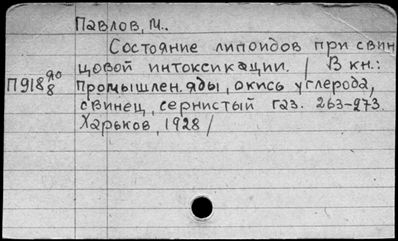 Павлов, М..
Состояние липоидов при свин
цовой интоксикации. / В кн.:
П918 Промышлен. яды, окись углерода,
8 свинец, сернистый газ. 263-273
Харьков, 1928/